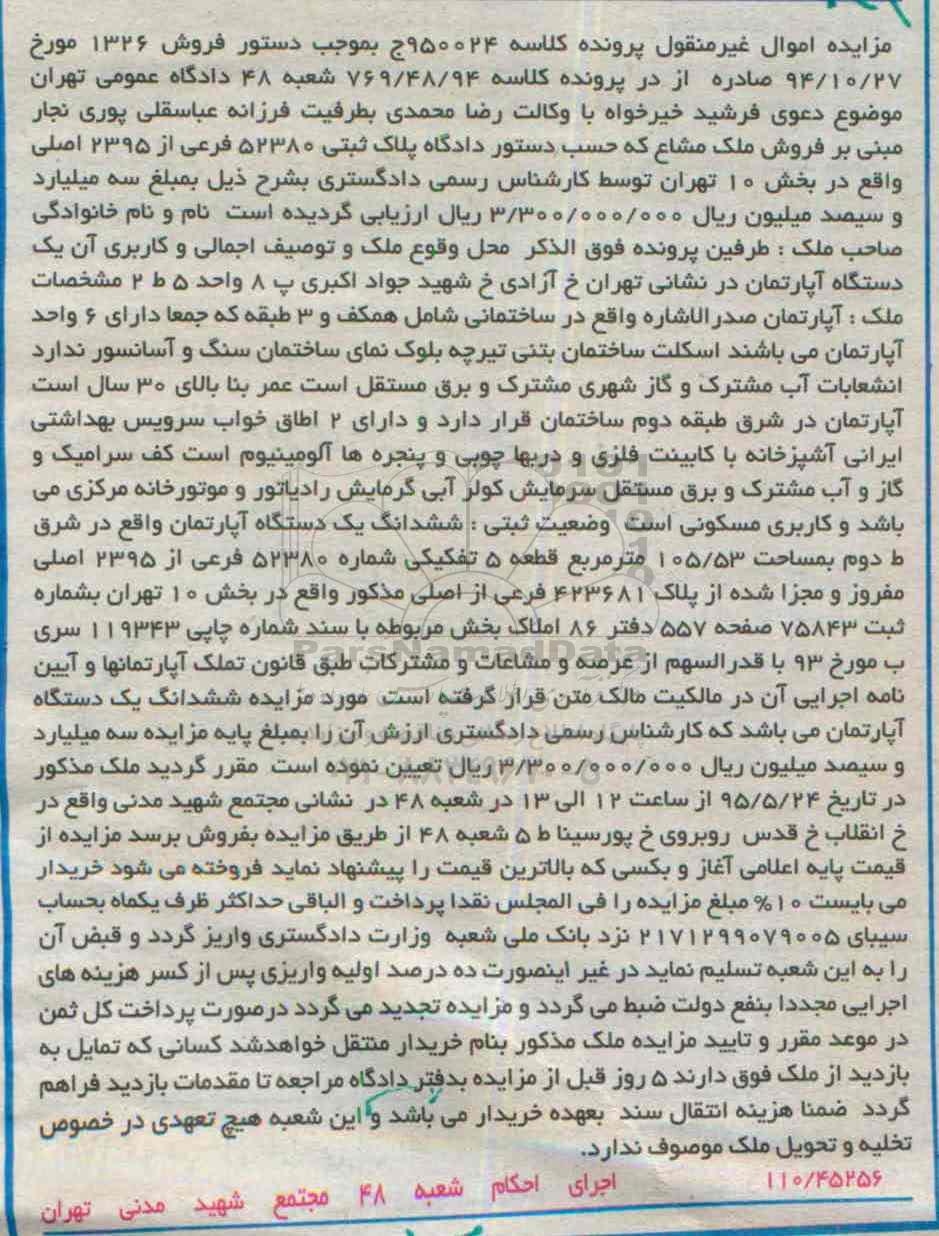 مزایده اموال غیرمنقول پرونده کلاسه ۹۵۰۰۲۴ج بموجب دستور فروش ۱۳۲۶ مورخ
۹۴/۱۰/۲۷ صادره از در پرونده کلاسه ۷۶۹/۴۸/۹۴ شعبه ۴۸ دادگاه عمومی تهران
موضوع دعوی فرشید خیرخواه با وکالت رضا محمدی بطرفیت فرزانه عباسقلی پوری نجار
مبنی بر فروش ملک مشاع که حسب دستور دادگاه پلاک ثبتی ۵۲۳۸۰ فرعی از ۲۳۹۵ اصلی
واقع در بخش ۱۰ تهران توسط کارشناس رسمی دادگستری بشرح ذیل بمبلغ سه میلیارد
و سیصد میلیون ریال ۳/۳۰۰/۰۰۰/۰۰۰ ریال ارزیابی گردیده است نام و نام خانوادگی
صاحب ملک : طرفین پرونده فوق الذکر محل وقوع ملک و توصیف اجمالی و کاربری آن یک
دستگاه آپارتمان در نشانی تهران خ آزادی خ شهید جواد اکبری پ ۸ واحد ۵ ط ۲ مشخصات
ملک : آپارتمان صدرالاشاره واقع در ساختمانی شامل همکف و ۳ طبقه که جمعا دارای ۶ واحد
آپارتمان می باشند اسکلت ساختمان بتنی تیرچه بلوک نمای ساختمان سنگ و آسانسور ندارد
انشعابات آب مشترک و گاز شهری مشترک و برق مستقل است عمر بنا بالای ۳۰ سال است
آپارتمان در شرق طبقه دوم ساختمان قرار دارد و دارای ۲ اطاق خواب سرویس بهداشتی
ایرانی آشپزخانه با کابینت فلزی و دربها چوبی و پنجره ها آلومینیوم است کف سرامیک و
گاز و آب مشترک و برق مستقل سرمایش کولر آبی گرمایش رادیاتور و موتورخانه مرکزی می
باشد و کاربری مسکونی است وضعیت ثبتی : ششدانگ یک دستگاه آپارتمان واقع در شرق
ط دوم بمساحت ۱۰۵/۵۳ مترمربع قطعه ۵ تفکیکی شماره ۵۲۳۸۰ فرعی از ۲۳۹۵ اصلی
مفروز و مجزا شده از پلاک ۴۲۳۶۸۱ فرعی از اصلی مذکور واقع در بخش ۱۰ تهران بشماره
ثبت ۷۵۸۴۳ صفحه ۵۵۷ دفتر ۸۶ املاک بخش مربوطه با سند شماره چاپی ۱۱۹۳۴۳ سری
ب مورخ ۹۳ با قدرالسهم از عرصه و مشاعات و مشترکات طبق قانون تملک آپارتمانها و آیین
نامه اجرایی آن در مالکیت مالک متن قرار گرفته است مورد مزایده ششدانگ یک دستگاه
آپارتمان می باشد که کارشناس رسمی دادگستری ارزش آن را بمبلغ پایه مزایده سه میلیارد
و سیصد میلیون ریال ۳/۳۰۰/۰۰۰/۰۰۰ ریال تعیین نموده است مقرر گردید ملک مذکور
در تاریخ ۹۵/۵/۲۴ از ساعت ۱۲ الی ۱۳ در شعبه ۴۸ در نشانی مجتمع شهید مدنی واقع در
خ انقلاب خ قدس روبروی خ پورسینا ط ۵ شعبه ۴۸ از طریق مزایده بفروش برسد مزایده از
قیمت پایه اعلامی آغاز و بکسی که بالاترین قیمت را پیشنهاد نماید فروخته می شود خریدار
می بایست ۱۰% مبلغ مزایده را فی المجلس نقدا پرداخت و الباقی حداکثر ظرف یکماه بحساب
سیبای ۲۱۷۱۲۹۹۰۷۹۰۰۵ نزد بانک ملی شعبه وزارت دادگستری واریز گردد و قبض آن
را به این شعبه تسلیم نماید در غیر اینصورت ده درصد اولیه واریزی پس از کسر هزینه های
اجرایی مجددا بنفع دولت ضبط می گردد و مزایده تجدید می گردد درصورت پرداخت کل ثمن
در موعد مقرر و تایید مزایده ملک مذکور بنام خریدار منتقل خواهدشد کسانی که تمایل به
بازدید از ملک فوق دارند ۵ روز قبل از مزایده بدفتر دادگاه مراجعه تا مقدمات بازدید فراهم
گردد ضمنا هزینه انتقال سند بعهده خریدار می باشد و این شعبه هیچ تعهدی در خصوص
تخلیه و تحویل ملک موصوف ندارد.
۱۱۰/۴۵۲۵۶ اجرای احکام شعبه ۴۸ مجتمع شهید مدنی تهران
ParsNamadData